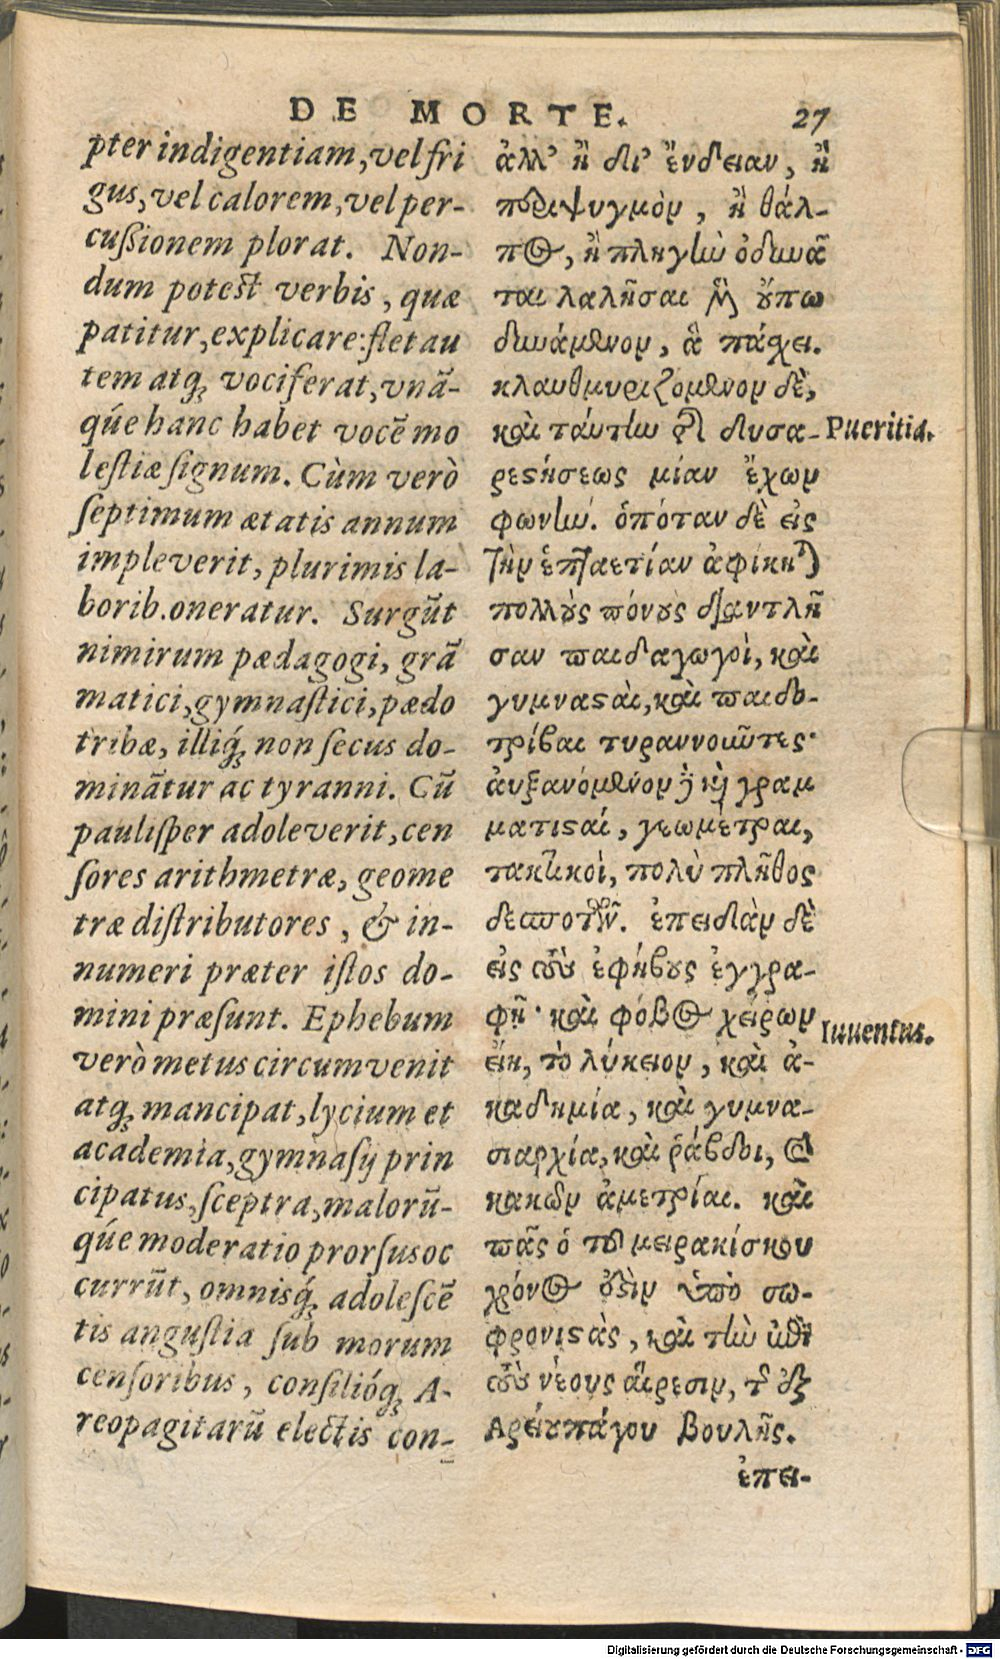 DE MORTE.
27
pter indigentiam, vel fri
gus, vel calorem, vel per-
cußionem plorat. Non-
dum potest verbis, quæ
patitur, explicare: flet au
tem atq; vociferat, vnã-
q́ue hanc habet vocẽ mo
lestiæ signum. Cùm verò
septimum ætatis annum
impleverit, plurimis la-
borib. oneratur. Surgũt
nimirum pædagogi, grã
matici, gymnastici, pædo
tribæ, illiq́; non secus do-
minãtur ac tyranni. Cũ
paulisper adoleverit, cen
sores arithmetræ, geome
træ distributores, & in-
numeri præter istos do-
mini præsunt. Ephebum
verò metus circumvenit
atq; mancipat, lycium et
academia, gymnasij prin
cipatus, sceptra, malorũ-
q́ue moderatio prorsus oc
currũt, omnisq́; adolescẽ
tis angustia sub morum
censoribus, consilióq; A-
reopagitarũ electis con-
ἀλλ' ἢ δι' ἔνδειαν, ἢ
περιψυγμὸν, ἢ θάλ-
πος, ἢ πληγὴν ὀδυνᾶ
ται λαλῆσαι μὲν οὔπω
δυνάμενον, ἃ πάχει.
κλαυθμυριζόμενον δὲ,
καὶ ταύτην τῆς δυσα-
ρεστήσεως μίαν ἔχων
φωνὴν. ὁπόταν δὲ εἰς
τὴν ἑπταετίαν ἀφίκηται
πολλοὺς πόνους διαντλῆ
σαν παιδαγωγοὶ, καὶ
γυμναστὰι, καὶ παιδο-
τρίβαι τυραννοῦντες·
ἀυξανόμενον δὲ καὶ γραμ
ματισταί, γεωμέτραι,
τακτικοὶ, πολὺ πλῆθος
δεσποτῶν. ἐπειδὰν δὲ
εἰς τοὺς ἐφήβους ἐγγρα-
φῆ· καὶ φόβος χείρων
ἔιη, τὸ λύκειον, καὶ ἀ-
καδημία, καὶ γυμνα-
σιαρχία, καὶ ῥάβδοι, καὶ
κακῶν ἀμετρίαι. καὶ
πᾶς ὁ τοῦ μειρακίσκου
χρόνος ὑπὸ σω-
φρονιστὰς, καὶ τὴν ἐπὶ
τοὺς νέους ἅιρεσιν, τῆς ἐξ
Ἀρείου πάγου βουλῆς.
ἐπει-
Pueritia.
Iuuentus.
Digitalisierung gefördert durch die Deutsche Forschungsgemeinschaft - DFG